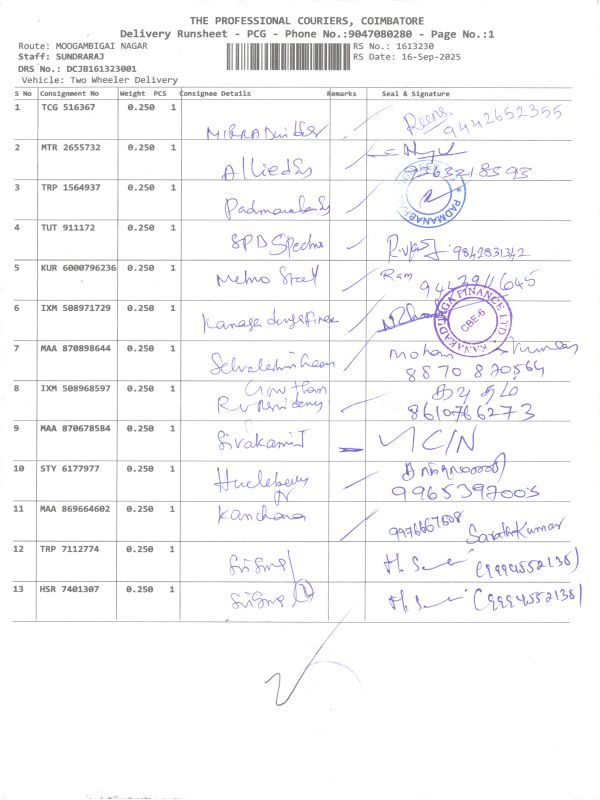 THE PROFESSIONAL COURIERS, COIMBATORE
Delivery Runsheet - PCG - Phone No.:9047080280 - Page No.:1
Route: MOOGAMBIGAI NAGAR
RS No.: 1613230
Staff: SUNDRARAJ
RS Date: 16-Sep-2025
DRS No.: DCJB161323001
Vehicle: Two Wheeler Delivery
S No Consignment No Weight PCS Consignee Details Remarks Seal & Signature
1 TCG 516367 0.250 1
9442652355
2 MTR 2655732 0.250 1 Allied
3 TRP 1564937 0.250 1
PADMANABH
4 TUT 911172 0.250 1 SPD Spectra 9842831342
5 KUR 6000796236 0.250 1 Metro Steel Ram
6 IXM 508971729 0.250 1
KANAKADURGA FINANCE LTD
CBE-6
7 MAA 870898644 0.250 1 Mohan
8870 870564
8 IXM 508968597 0.250 1 Gowtham
R.V Residency 8610766273
9 MAA 870678584 0.250 1 Sivakami I C/N
10 STY 6177977 0.250 1 Hucleberry
9965397003
11 MAA 869664602 0.250 1 Kanchana
9976667608 Sarath Kumar
12 TRP 7112774 0.250 1 (9994552138)
13 HSR 7401307 0.250 1 (9994552138)